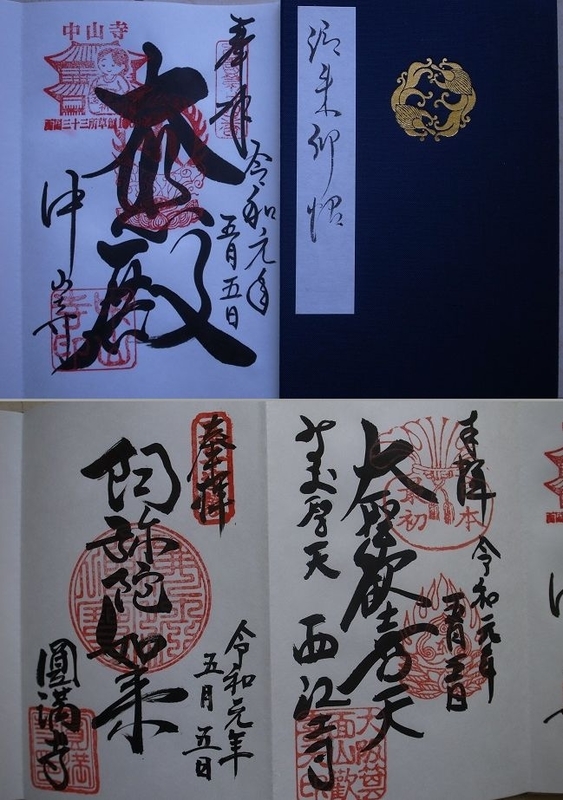 奉拝
令和元年
五月五日
大悲殿
中山寺
中山寺
西国三十三所草創1300年
御朱印帳
奉拝
令和元年
五月五日
阿弥陀如来
圓満寺
奉拝
令和元年
五月五日
日本最初
大聖歓喜天
みのお聖天
西江寺